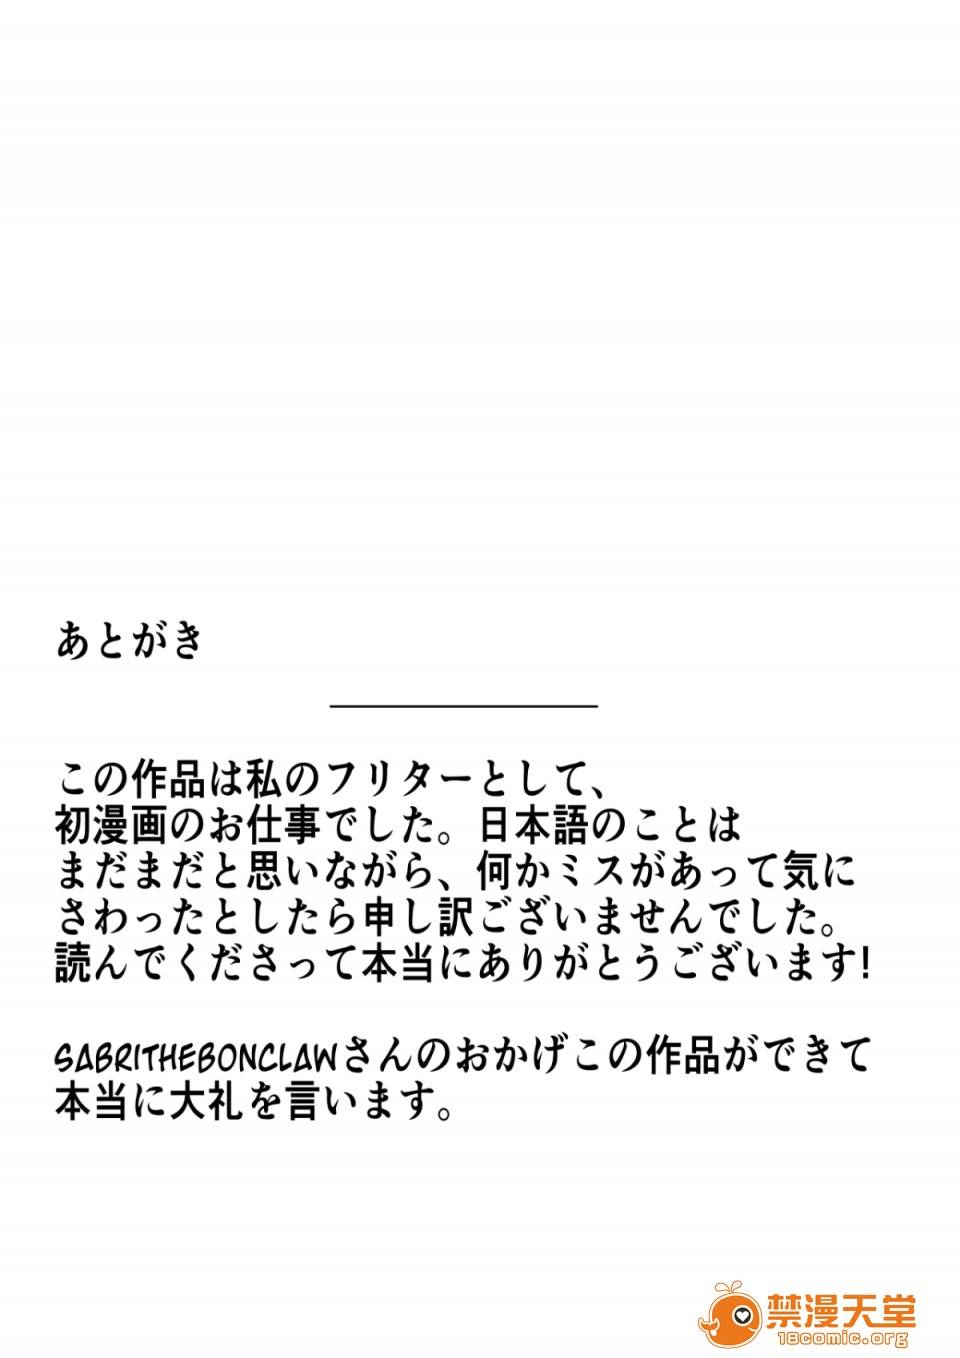 あとがき
この作品は私のフリターとして、
初漫画のお仕事でした。日本語のことは
まだまだと思いながら、何かミスがあって気に
さわったとしたら申し訳ございませんでした。
読んでくださって本当にありがとうございます!
SABRITHEBONCLAWさんのおかげこの作品ができて
本当に大礼を言います。
禁漫天堂
18comic.org